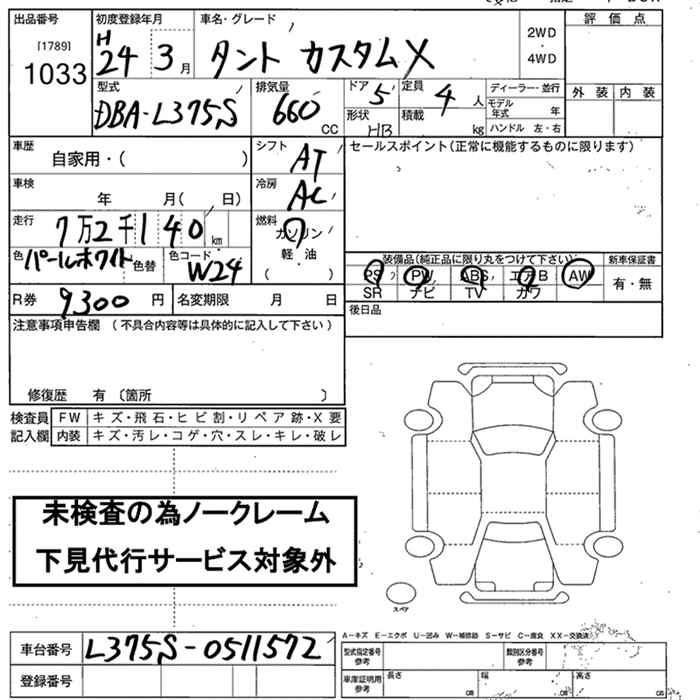 出品番号 初度登録年月 車名・グレード 評価点
[1789] H 2WD
1033 24 3月 タント カスタムX ・
4WD
型式 排気量 ドア 定員 ディーラー・並行 外装 内装
DBA-L375S 660 CC 5 4 人 モデル年式 年
形状 HB 積載 kg ハンドル 左・右
車歴 自家用・( ) シフト AT セールスポイント(正常に機能するものに限ります)
車検 年 月( 日) 冷房 AC
走行 7万2千140 km 燃料 ガソリン
軽・油
( )
色 パールホワイト 色替 色コード W24
装備品(純正品に限り丸をつけて下さい) 新車保証書
PS PW ABS エアB AW 有・無
SR ナビ TV カワ
R券 9300 円 名変期限 月 日 後日品
注意事項申告欄 (不具合内容等は具体的に記入して下さい)
修復歴 有 (箇所 )
検査員 FW キズ・飛石・ヒビ割・リペア跡・X要
記入欄 内装 キズ・汚レ・コゲ・穴・スレ・キレ・破レ
未検査の為ノークレーム
下見代行サービス対象外
スペア
A-キズ E-エクボ U-凹み W-補修跡 S-サビ C-腐食 XX-交換済
車台番号 L375S-0511572 型式指定番号 参考 類別区分番号 参考
登録番号 車庫証明用 参考 長さ cm 幅 cm 高さ cm